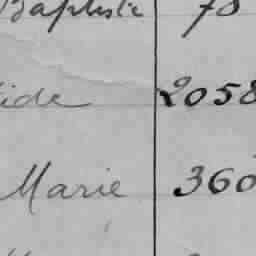 Baptiste 70
ide 2058
Marie 360